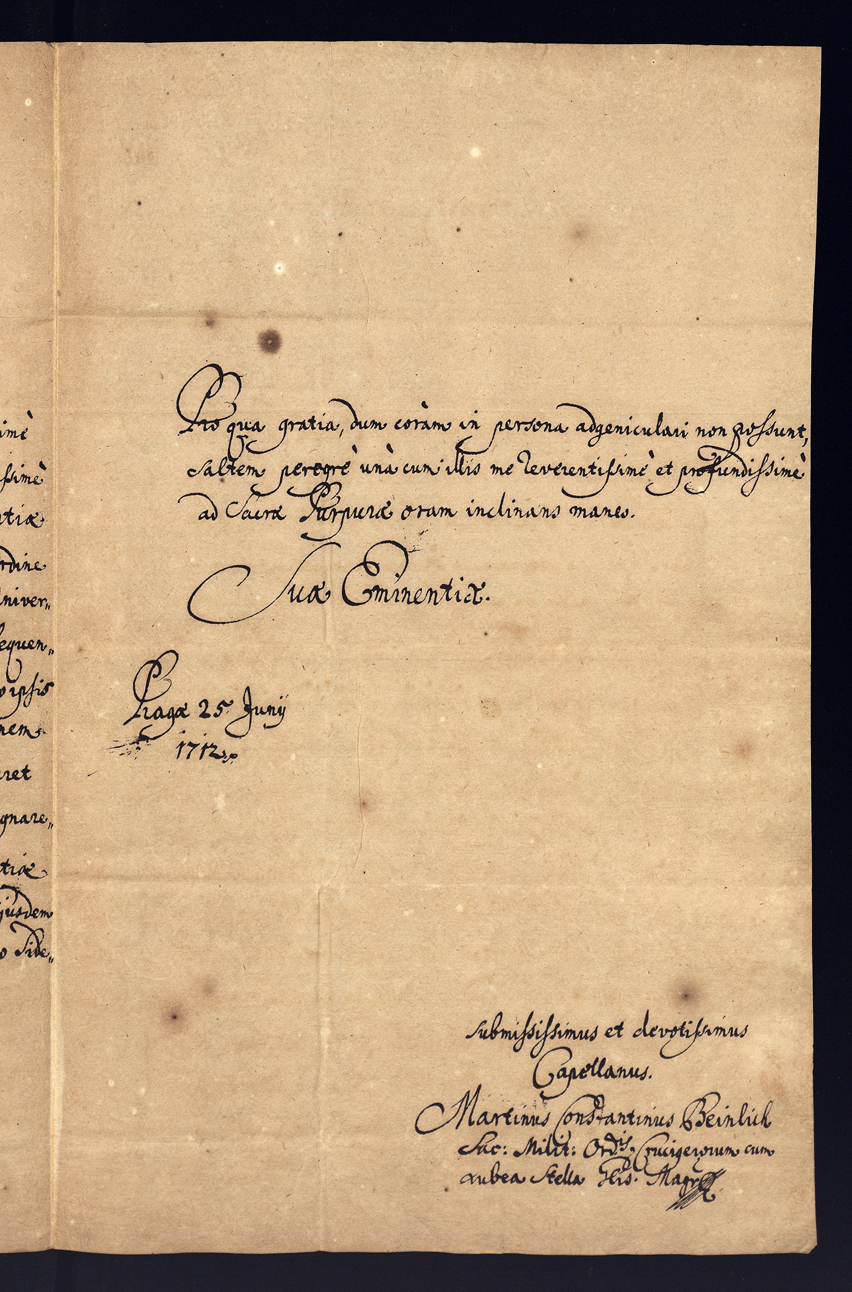 imè
ssimè
ntiæ
rdine
niver„
equen„
o ipsis
nem
ret
gnare„
tiæ
ejusdem
o Side„
Pro qua gratia, dum coràm in persona adgeniculari non possunt,
saltem peregrè unà cum illis me reverentissimè et profundissimè
ad Sacræ Purpuræ oram inclinans maneo.
Suæ Eminentiæ.
Pragæ 25 Junij
1712
submississimus et devotissimus
Capellanus.
Martinus Constantinus Beinlich
Sac: Milit: Ordis Crucigerorum cum
rubea Stella Glis. Magr